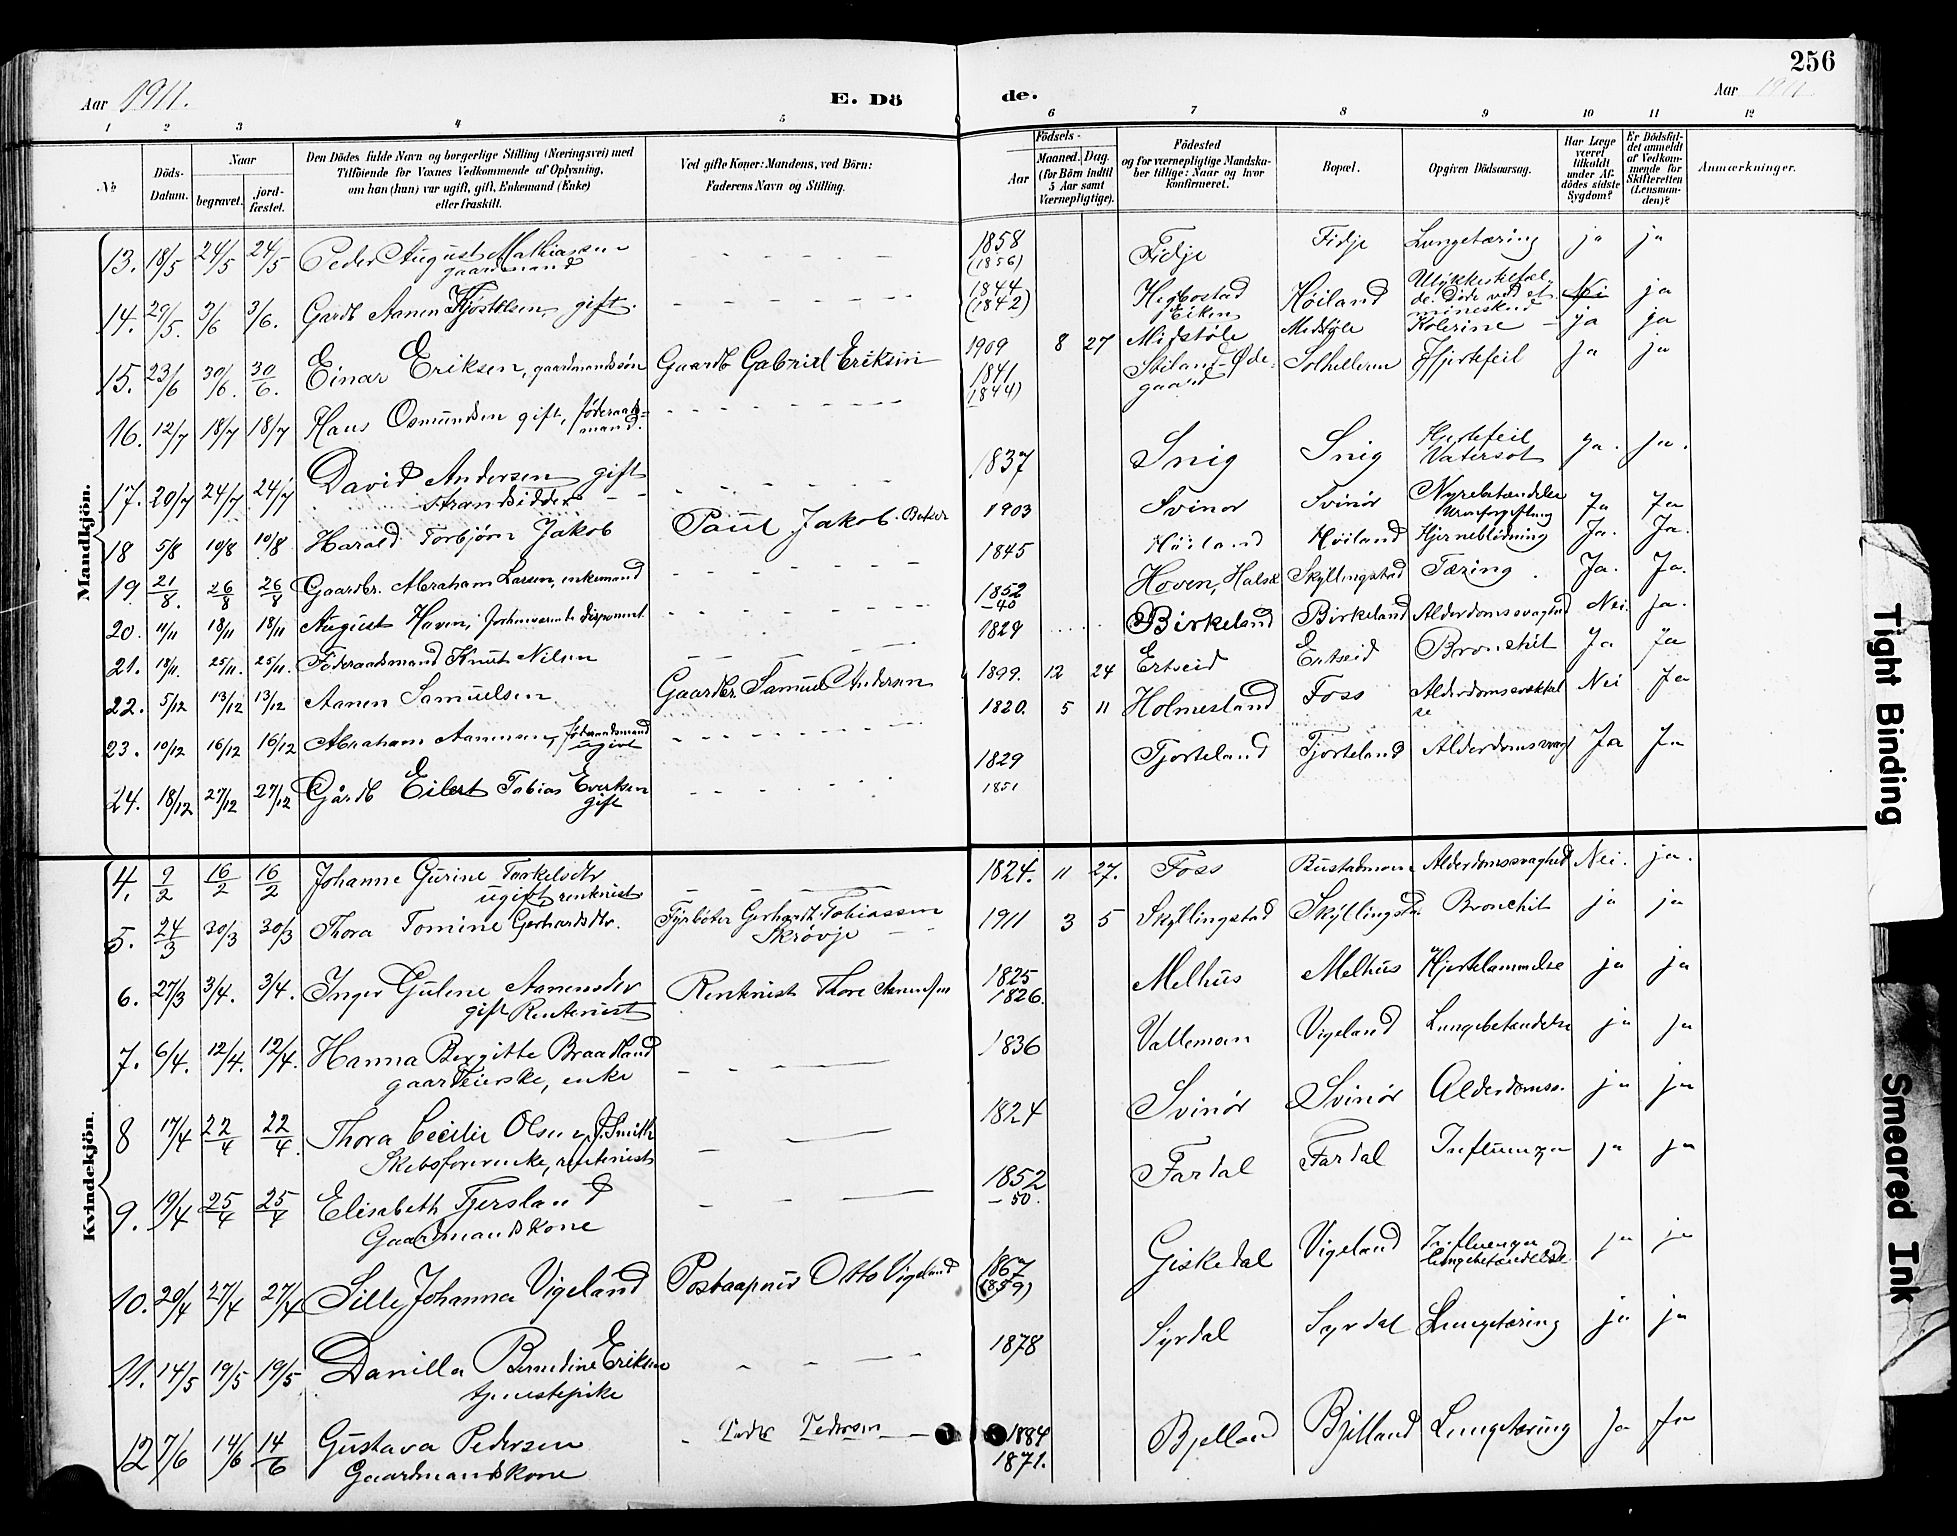 256
Aar 1911.
E. Dö
de.
Aar 1911
1 2 3 4 5 6 7 8 9 10 11 12
No
Döds-Datum.
Naar
begravet.
jord-fæstet.
Den Dödes fulde Navn og borgerlige Stilling (Næringsvei) med
Tilföiende for Voxnes Vedkommende af Oplysning,
om han (hun) var ugift, gift, Enkemand (Enke)
eller fraskilt.
Ved gifte Koner: Mandens, ved Börn:
Faderens Navn og Stilling.
Födsels-
Aar
Maaned. Dag.
(for Börn indtil
5 Aar samt
Værnepligtige).
Födested
og for værnepligtige Mandska-
ber tillige: Naar og hvor
konfirmeret.
Bopæl.
Opgiven Dödsaarsag.
Har Læge
været
tilkaldt
under Af-
dödes sidste
Sygdom?
Er Dödsfal-
det anmeldt
af Vedkom-
mende for
Skifteretten
(Lensman-
den)?
Anmærkninger.
Mandkjön.
13. 18/5 24/5 24/5 Peder August Mathiassen gaardmand 1858 (1856) Fidje Fidje Lungetæring ja ja
14. 29/5. 3/6 3/6. Gardb Aanen Kjöstolsen, gift. 1844 (1842) Hegbostad Eiken Höiland Ulykkestilfæl- de. Döde ved et mineskud Nei ja
15. 23/6 30/6. 30/6. Einar Eriksen, gaardmandssön Gaardb Gabriel Eriksen 1909 8 27 Midstöle Midstöle Kolerine ja ja
16. 12/7 18/7 18/7 Hans Osmundsen gift, föderaads- mand. 1841 1844) Stiland-Öde- gaard Solhelleren Hjertefeil ja ja
17. 20/7 24/7 24/7 David Andersen gift strandsidder 1837 Snig Snig Hjertefeil Vatersot ja. ja.
18 5/8 10/8 10/8 Harald Torbjörn Jakob Paul Jakob. 1903 Svinör Svinör Nyrebetændelse Ja Ja
19 21/8. 26/8 26/8 Gaardbr. Abraham Larsen, enkemand 1845 Höiland Höiland Hjerneblödning Ja. Ja.
20. 11/11 18/11 18/11 August Hoven, disponent. 1852 -40 Hoven, Halså Skyllingstad Tæring. Ja. Ja.
21. 18/11. 25/11. 25/11. Föderaadsmand Knut Nilsen 1829 Birkeland Birkeland Alderdomssvaghed Nei. ja.
22. 5/12 13/12 13/12 Aanen Samuelsen Gaardbr. Samuel Andersen 1899. 12 24 Ertseid Ertseid Bronchit Ja Ja
23. 10/12 16/12 16/12 Abraham Aanensen, föderaadsmand ugivt 1820. 5 11 Holmesland Foss Nei Ja
24. 18/12 27/12 27/12 Gårdb Eilert Tobias Evertsen gift 1829 1851 Tjorteland Tjorteland Ja Ja
Kvindekjön.
4. 9/2 16/2 16/2 Johanne Gurine Torkelsdtr ugift, rentenist 1824. 11 27. Foss Bustadmoen Alderdomssvaghed Nei. ja.
5. 24/3 30/3 30/3 Thora Tomine Gerhardsdtr. Fyrböter Gerhardt Tobiassen Skrövje 1911 3 5 Skyllingstad Skyllingstad Bronchit ja ja
6. 27/3 3/4. 3/4. Inger Gulene Aanensdtr gift Rentenist Rentenist Thore Aanensen 1825 1826. Melhus Melhus Hjertelammelse ja ja
7. 6/4. 12/4. 12/4. Hanna Bergitte Braadland gaardeierske, enke 1836 Vallemoen Vigeland Lungebetændelse ja ja
8 17/4 22/4 22/4. Thora Cecilie Olsen, f. Smith Skibsförerenke, rentenist 1824 Svinör Svinör Alderdomss. ja ja
9. 19/4 25/4 25/4 Elisabeth Tjersland Gaardmandskone 1852 -50. Fardal Fardal Influenza ja ja
10. 20/4 27/4 27/4 Sille Johanna Vigeland Postaapner Otto Vigeland 1867 (1859) Giskedal Vigeland Influenza og lungebetændelse ja ja
11. 14/5 19/5 19/5 Danilla Berndine Eriksen tjenestepike 1878 Syrdal Syrdal Lungetæring ja ja
12 7/6 14/6 14/6 Gustava Pedersen Gaardmandskone Peder Pedersen 1884 1871. Bjelland Bjelland Lungetæring Ja Ja
Tight Binding
Smeared Ink